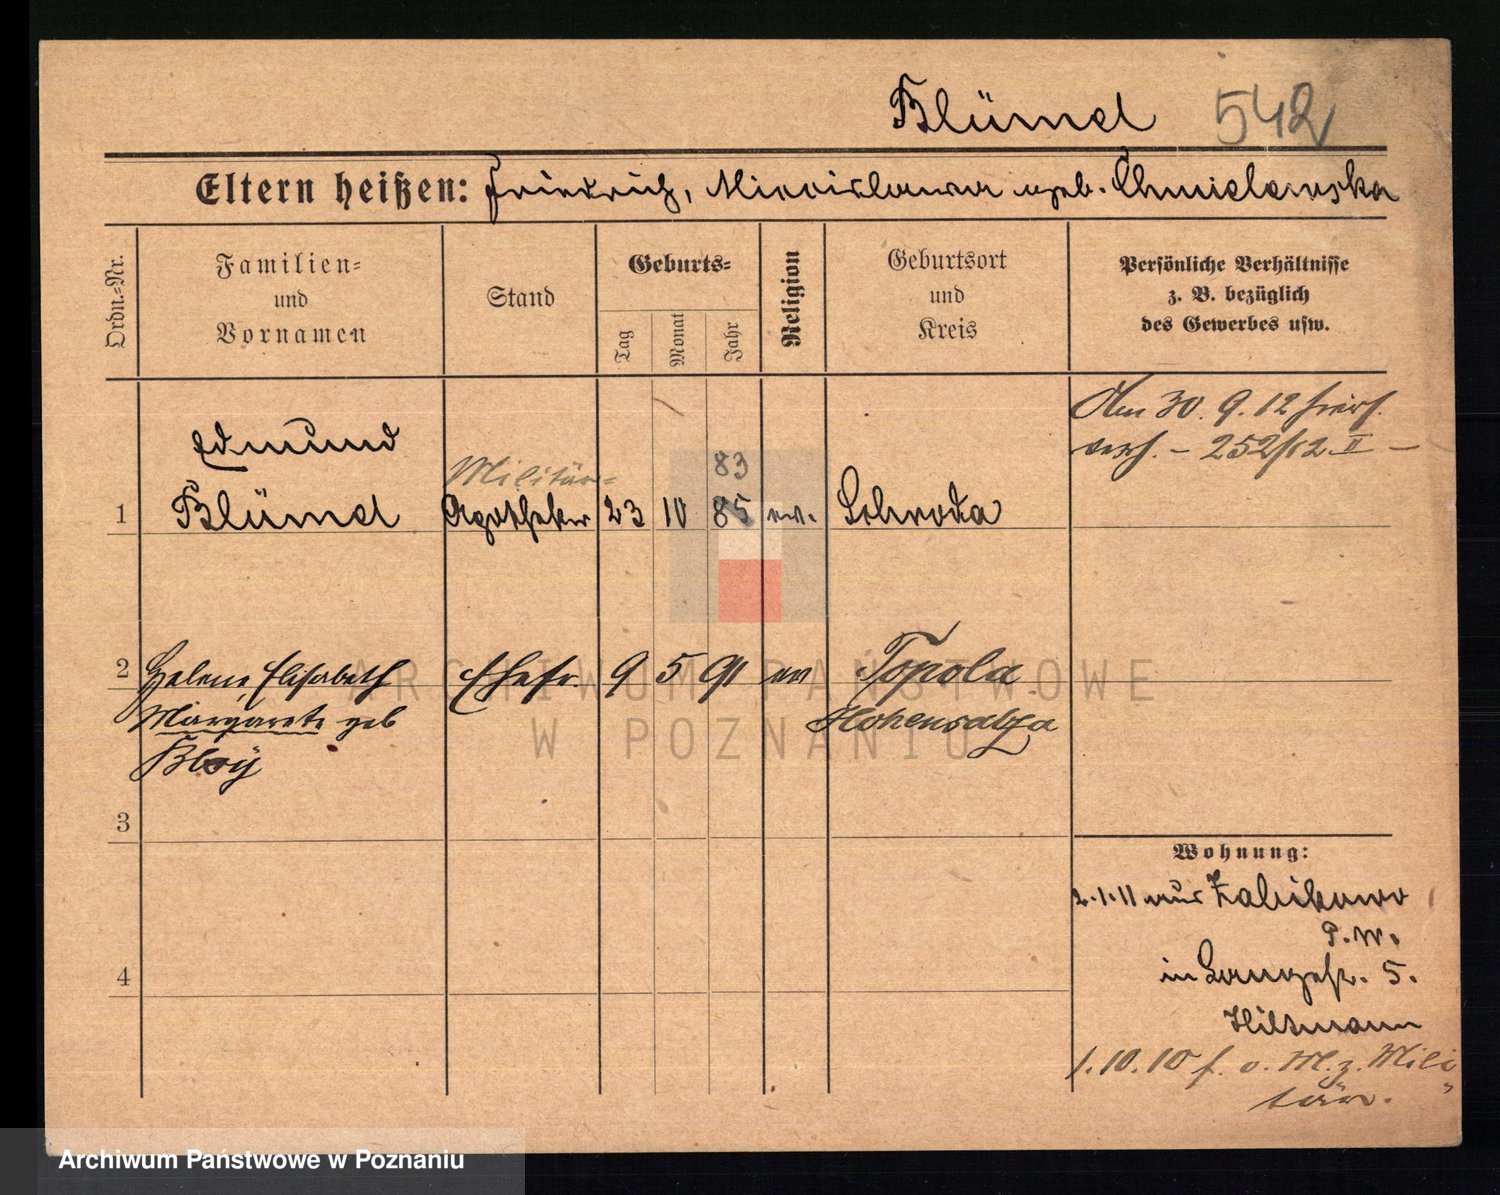 Blümel 542
Eltern heißen: Friedrich, Miecislawa geb. Chmielewska
Ordn.=Nr.
Familien=
und
Vornamen
Stand
Geburts=
Tag
Monat
Jahr
Religion
Geburtsort
und
Kreis
Persönliche Verhältnisse
z. B. bezüglich
des Gewerbes usw.
Am 30. 9. 12 hierh.
verh. - 252/12 II -
Edmund
Militär=
83
1 Blümel Apotheker 23 10 85 ev. Schroda
2 Helene, Elisabeth Ehefr. 9 5 91 ev Topola
Margarete geb Hohensalza
Bloÿ
3
4
Wohnung:
2.1.11 aus Zabikowo
P.W.
in Langestr. 5.
1.10.10 f. v. M. z. Mili
tär.
ARCHIWUM PAŃSTWOWE
W POZNANIU
Archiwum Państwowe w Poznaniu